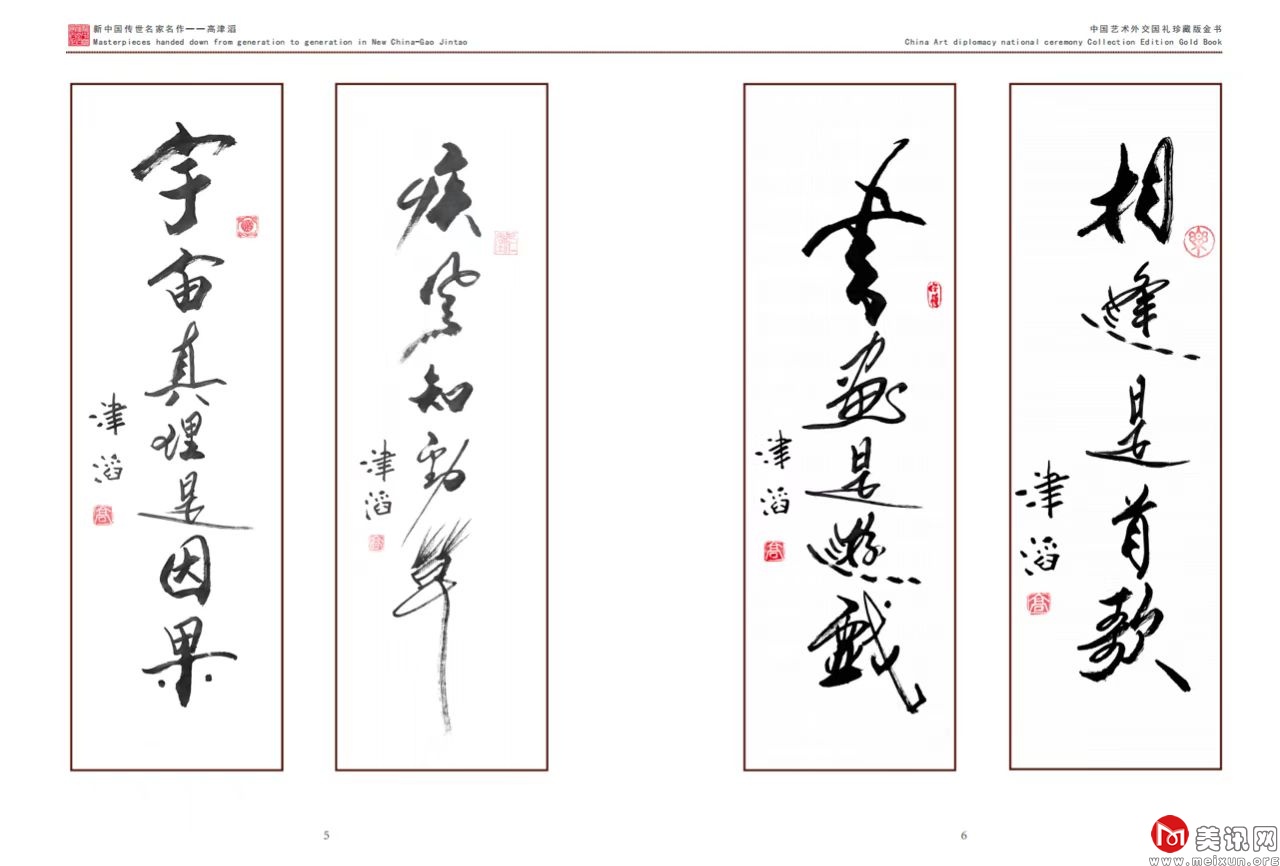 新中国传世名家名作——高津滔
Masterpieces handed down from generation to generation in New China-Gao Jintao
中国艺术外交国礼珍藏版金书
China Art diplomacy national ceremony Collection Edition Gold Book
宇宙真理是因果
津滔
高
疾風知勁草
津滔
高
書畫是遊戲
津滔
高
相逢是首歌
津滔
高
5
6
美讯网
www.meixun.org